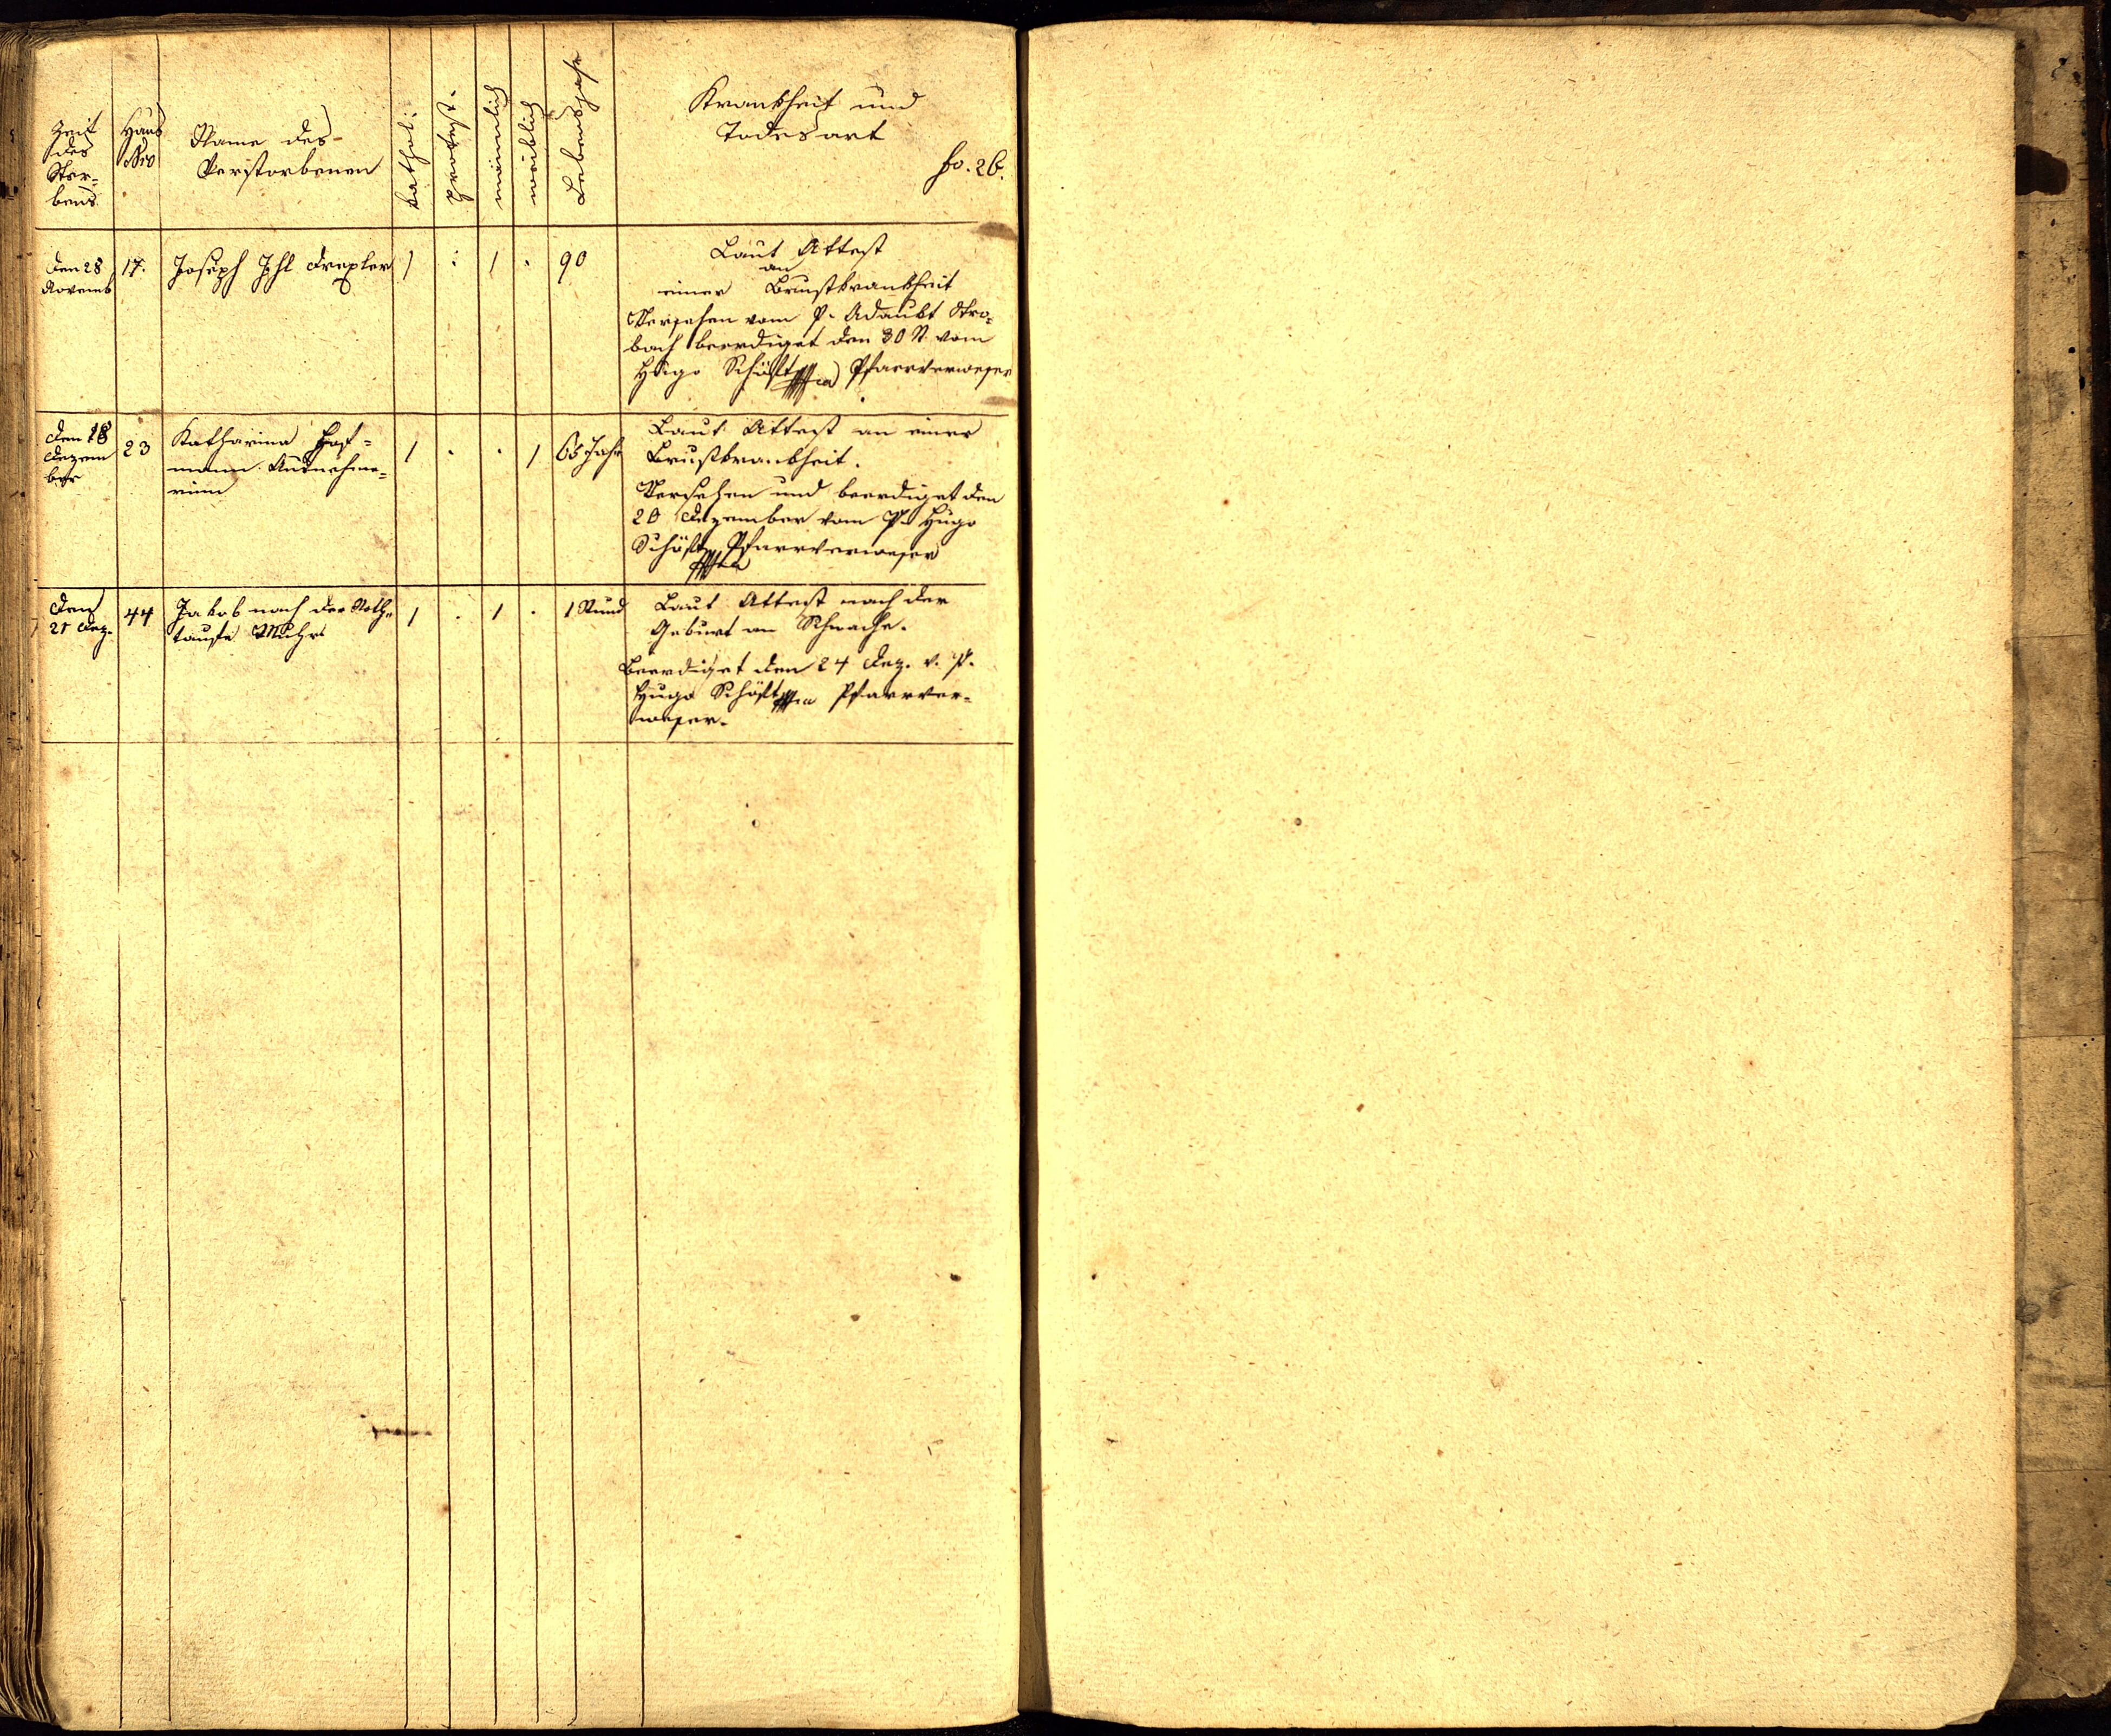 Zeit
des
Ster-
bens
Haus
Nro
Name des
Verstorbenen
kathol:
protest.
männlich
weiblich
Lebensjahr
Krankheit und
Todesart
fo. 26.
den 28
Novemb
17.
Joseph Ihl Drexler
1 : 1 .
90
Laut Attest
an
einer Brustkrankheit
Versehen vom P. Adaukt Stro-
bach beerdiget den 30 N. vom
Hugo Pfarrverweser
den 18
Dezem
ber
23
Katharina Hof-
mann Ausnehme-
rinn
1 . . 1
65 Jahr
Laut Attest an einer
Brustkrankheit.
Versehen und beerdiget den
20 Dezember vom P. Hugo
Pfarrverweser
den
21 Dez.
44
Jakob nach der Noth-
taufe
1 . 1 .
1 Stund
Laut Attest nach der
Geburt an Schwäche.
Beerdiget den 24 Dez. v. P.
Hugo Pfarrver-
weser.